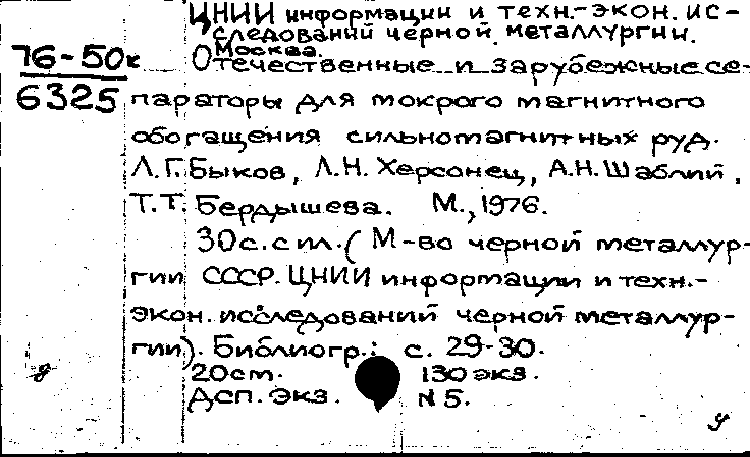 ЦНИИ информации и техн.-экон. ис-
следований черной металлургии.
Москва.
76-50к
6325
Отечественные и зарубежные се-
параторы для мокрого магнитного
обогащения сильномагнитных руд.
Л.Г. Быков, Л.Н. Херсонец, А.Н. Шаблий,
Т.Т. Бердышева. М., 1976.
30 с. с ил. (М-во черной металлур-
гии СССР. ЦНИИ информации и техн.-
экон. исследований черной металлур-
гии). Библиогр.: с. 29-30.
20 см. 130 экз.
Дсп. Экз. N 5.